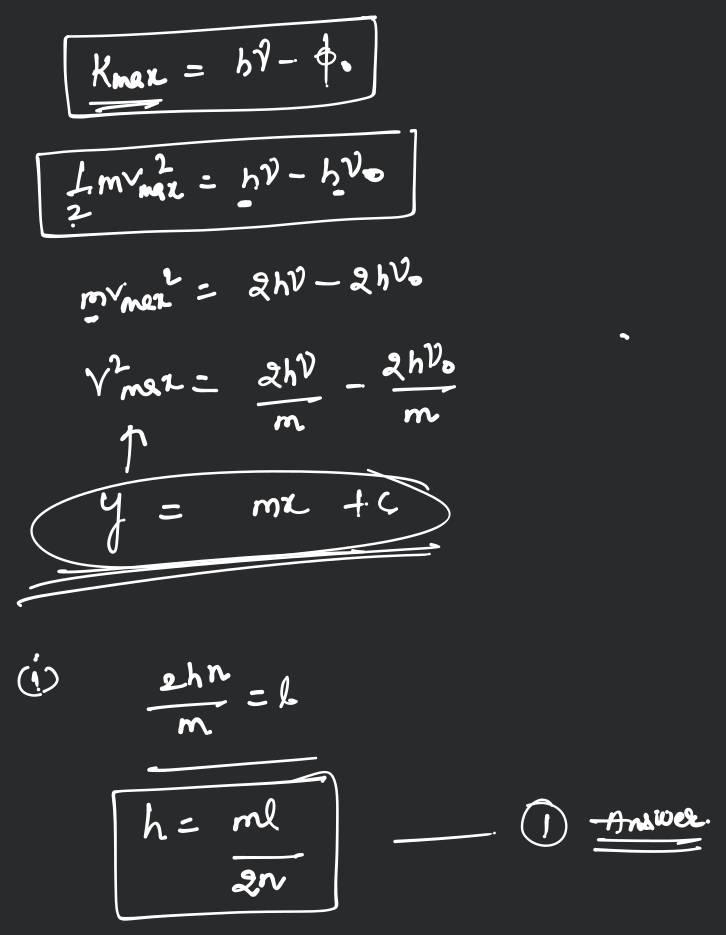 Kmax = hν - ϕ₀
1/2 mv²max = hν - hν₀
mvmax² = 2hν - 2hν₀
v²max = 2hν/m - 2hν₀/m
↑
y = mx + c
(i) 2hn/m = l
h = ml/2n —— ① Answer.